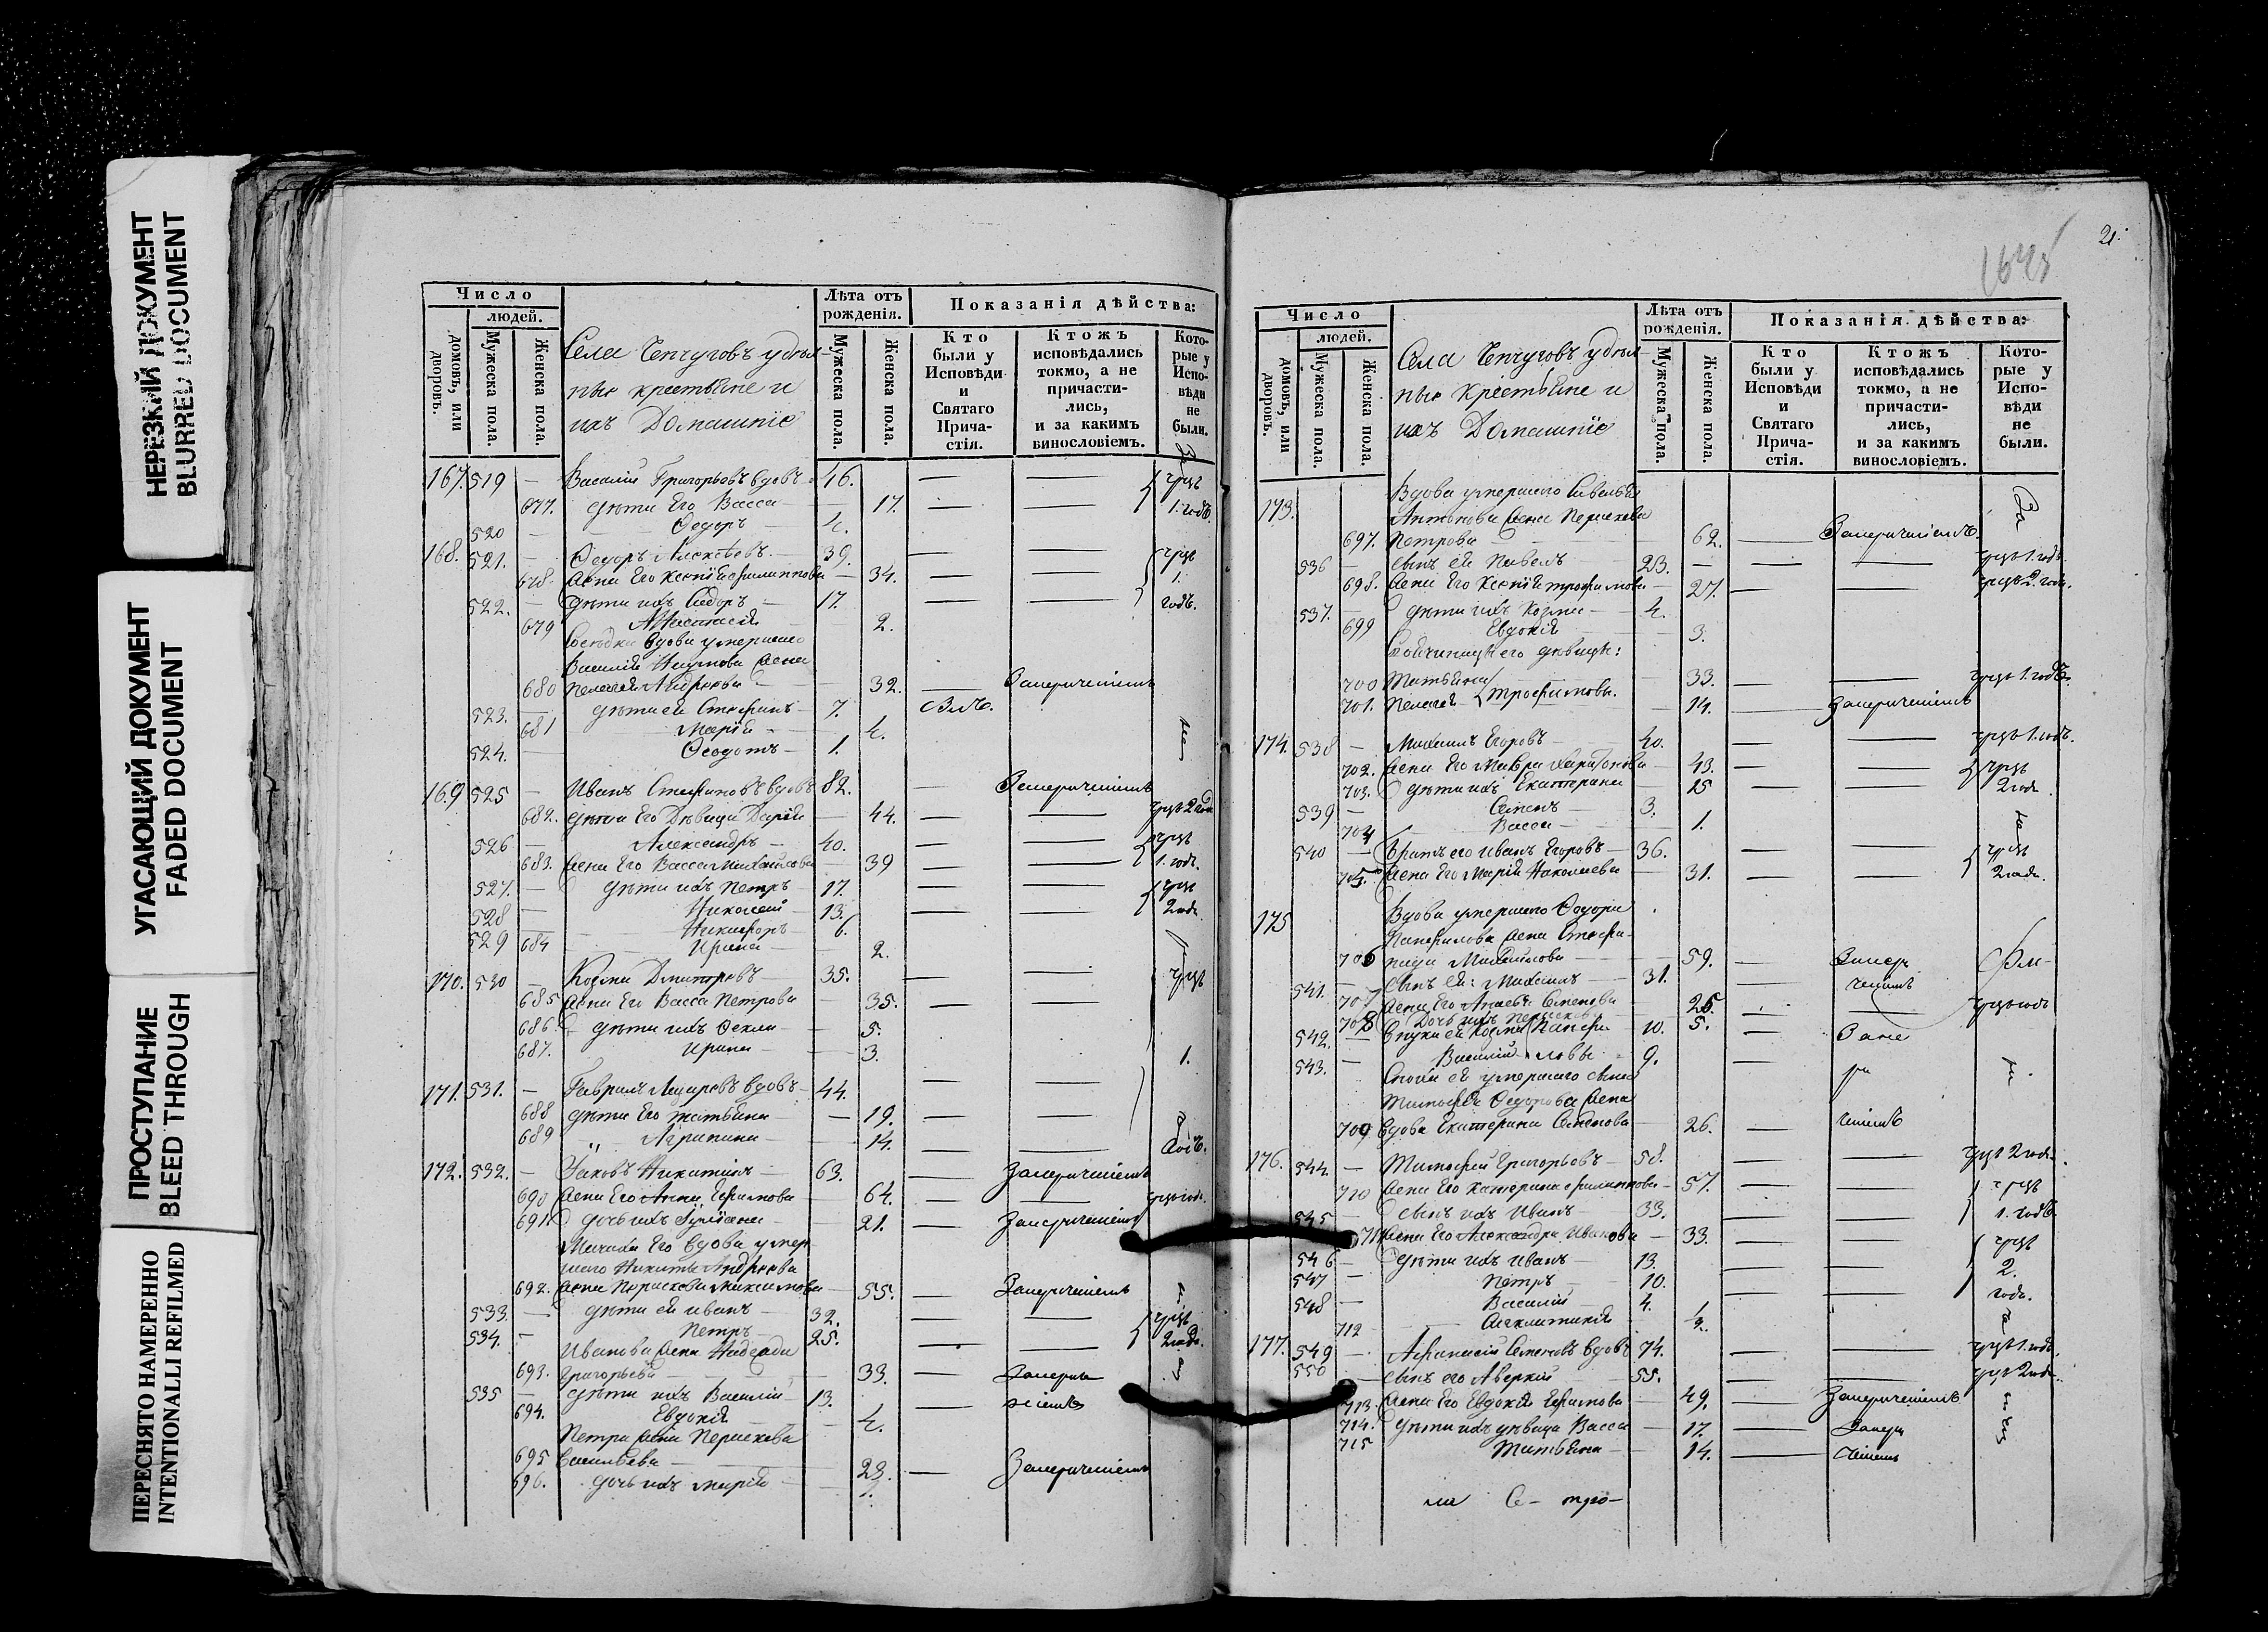 НЕРЕЗКИЙ ДОКУМЕНТ
BLURRED DOCUMENT
УГАСАЮЩИЙ ДОКУМЕНТ
FADED DOCUMENT
ПРОСТУПАНИЕ
BLEED THROUGH
ПЕРЕСНЯТО НАМЕРЕННО
INTENTIONALLI REFILMED
Число
людей.
домовъ, или дворовъ.
Мужеска пола.
Женска пола.
Села Чепчуговъ удѣль-
ныя крестьяне и
ихъ Домашніе
Лѣта отъ рожденія.
Мужеска пола.
Женска пола.
Показанія дѣйства:
Кто были у Исповѣди и Святаго Прича-стія.
Ктожъ исповѣдались токмо, а не причасти-лись, и за какимъ винословіемъ.
Кото-рые у Испо-вѣди не были.
167. 519 — Василій Григорьевъ вдовъ 46.
677. дѣти Его Васса — 17. 1. годъ.
520 — Ѳедоръ 4.
168. 521. — Ѳедоръ Алексѣевъ — 39.
678. жена Его Ксенія Филиппова — 34. 1.
522. — дѣти ихъ Сидоръ — 17. годъ.
679 Анастасія 2.
Сосѣдка вдова умершаго
Василія Наумова жена
680 Пелагея Андреева — 32. Занераченіемъ
523. — дѣти ея Стефанъ — 7.
681 Марія — 4.
524. — Ѳеодотъ — 1.
169 525 — Иванъ Стефановъ вдовъ 82. Занераченіемъ
682. дѣти Его Дѣвица Дарія — 44.
526 — Александръ — 40.
683. жена Его Васса Михайлова — 39 1. годъ.
527. — дѣти ихъ Петръ — 17.
528 — Николай — 13.
529 — Никифоръ — 6.
684 Ирина — 2.
170. 530 — Козма Дмитревъ — 35.
685 жена Его Васса Петрова — 35.
686 дѣти ихъ Ѳекла — 5.
687. Ирина — 3. 1.
171. 531. — Гаврилъ Лазаревъ вдовъ 44.
688 дѣти Его Татьяна — 19.
689 „ Агрипина — 14. годъ.
172. 532. — Яковъ Никитинъ — 63. Занераченіемъ
690 жена Его Анна Ефимова — 64.
691. дочь ихъ Іуліана — 21. Занераченіемъ
Мачиха Его вдова умер-
шаго Никиты Андреева
692. жена Параскева Максимова — 55. Занераченіемъ
533. — дѣти ея Иванъ — 32.
534. — Петръ — 25.
Иванова жена Надежда
693. Григорьева — 33. Занерач
535 — дѣти ихъ Василій — 13. ніемъ
694. Евдокія — 4.
Петра жена Параскева
695 Васильева — 23. Занераченіемъ
696. дочь ихъ Марія — 1.
21.
Число
людей.
домовъ, или дворовъ.
Мужеска пола.
Женска пола.
Села Чепчуговъ удѣль-
ныя крестьяне и
ихъ Домашніе
Лѣта отъ рожденія.
Мужеска пола.
Женска пола.
Показанія дѣйства:
Кто были у Исповѣди и Святаго Прича-стія.
Ктожъ исповѣдались токмо, а не причасти-лись, и за какимъ винословіемъ.
Кото-рые у Испо-вѣди не были.
173. Вдова умершаго Савелья
Антонова жена Параскева
697. Петрова — 62. Занераченіемъ.
536 — сынъ ея Павелъ — 23. 1. годъ.
698. жена Его Ксенія Трофимова — 27. 2. года.
537. — дѣти ихъ Козма — 4.
699 Евдокія 3.
его дѣвицы:
700 Татьяна 33. 1. годъ.
701. Пелагея Трофимовы. — 14. Занераченіемъ
174. 538 — Михаилъ Егоровъ — 40. 1. годъ.
702. жена Его Мавра Харитонова — 43.
703. дѣти ихъ Екатерина — 15 2 года.
539 — Семенъ — 3.
704 Васса — 1.
540 — братъ его Иванъ Егоровъ — 36.
705 жена Его Марія Николаева — 31. 2 года.
175 Вдова умершаго Ѳедора
Панфилова жена Стефа-
706 нида Михайлова — 59. Занера
541. — сынъ ея: Михаилъ — 31. ченіемъ
707 жена Его Семенова — 25.
708 Дочь ихъ Параскева 5.
542. — внуки ея Козма Панфи 10. Зане
543. — Василій ловы 9. ра
Сноха ея умершаго сына
Тимофея Ѳедорова жена
709 вдова Екатерина Семенова — 26. ченіемъ
176. 544. — Тимофей Григорьевъ — 58. 2 года.
710 жена Его Катерина Филиппова — 57.
545 — сынъ ихъ Иванъ — 33. 1. годъ
711 жена Его Александра Иванова — 33.
546 — дѣти ихъ Иванъ — 13.
547 — Петръ — 10. 2.
548 — Василій — 4. года.
712 — 4.
177. 549 — Афанасій Семеновъ вдовъ 74. 1. годъ.
550 — сынъ его Аверкій — 55. 2 года.
713. жена Его Евдокія Ефимова — 49. Занераченіемъ
714. дѣти ихъ дѣвица Васса — 17. Занера
715 Татьяна — 14. ченіемъ